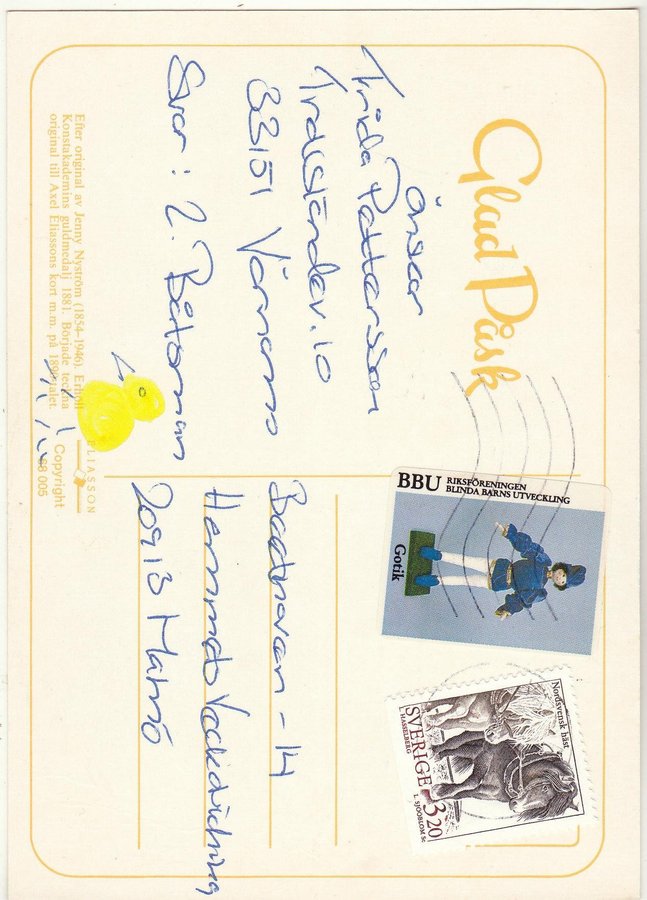 Glad Påsk
Önskar
Frida Pettersson
Trollsländev.10
33151 Värnamo
Svar: 2. Båtsman
Efter original av Jenny Nyström (1854-1946). Erhöll
Konstakademins guldmedalj 1881. Började teckna
original till Axel Eliassons kort m.m. på 1890-talet.
ELIASSON
Copyright
005
BBU RIKSFÖRENINGEN
BLINDA BARNS UTVECKLING
Gotik
Nordsvensk häst
SVERIGE 3.20
HASSELBERG
L. SJÖÖBLOM SC
-14
Hemmets Veckotidning
20913 Malmö